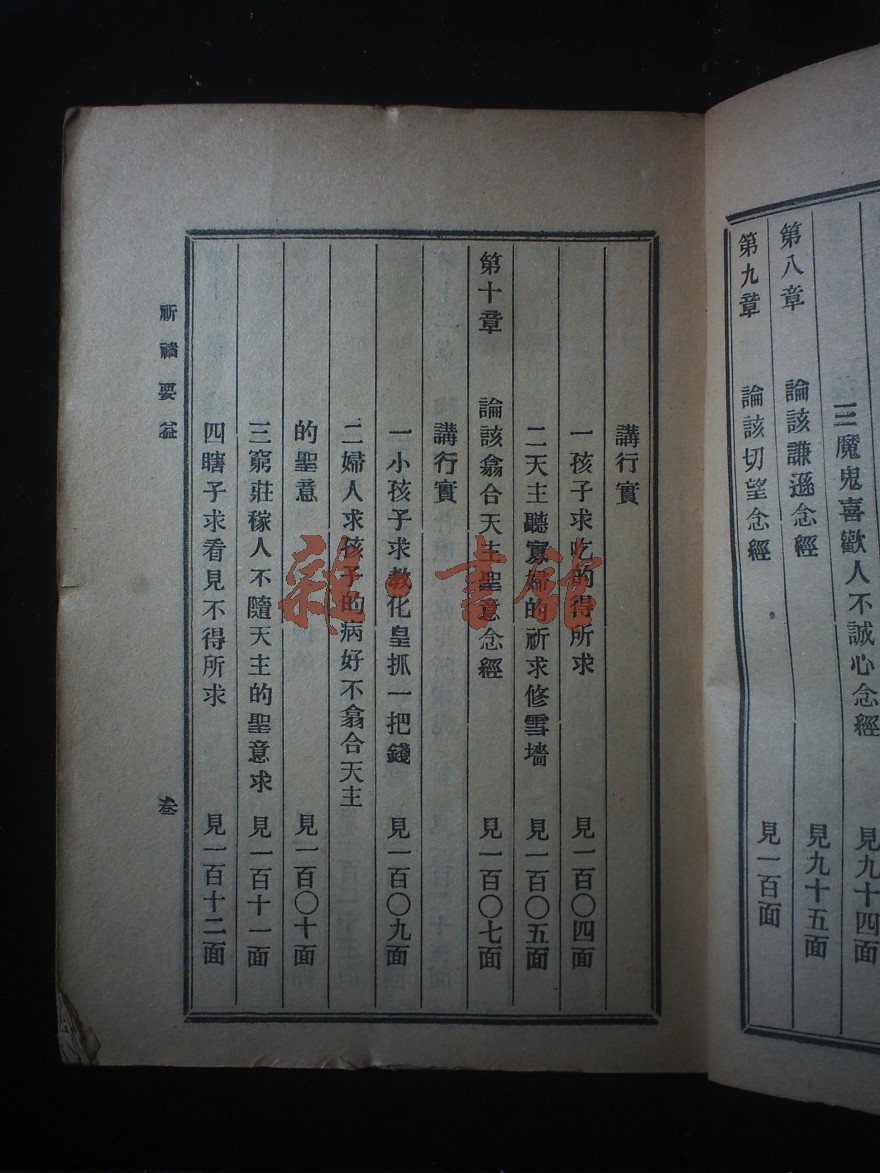 三魔鬼喜歡人不誠心念經 見九十四面
第八章 論該謙遜念經 見九十五面
第九章 論該切望念經 見一百面
講行實
一孩子求吃的得所求 見一百〇四面
二天主聽寡婦的祈求修雪墻 見一百〇五面
第十章 論該翕合天主聖意念經 見一百〇七面
講行實
一小孩子求教化皇抓一把錢 見一百〇九面
二婦人求孩子的病好不翕合天主
的聖意 見一百〇十面
三窮莊稼人不隨天主的聖意求 見一百十一面
四瞎子求看見不得所求 見一百十二面
祈禱要益 卷
雜·書館